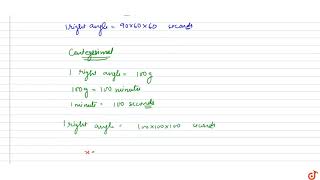 1 right angle = 90x60x60 seconds
Centesimal
1 right angle = 100g
100g = 100 minute
1 minute = 100 seconds
1 right angle = 100x100x100 seconds
x